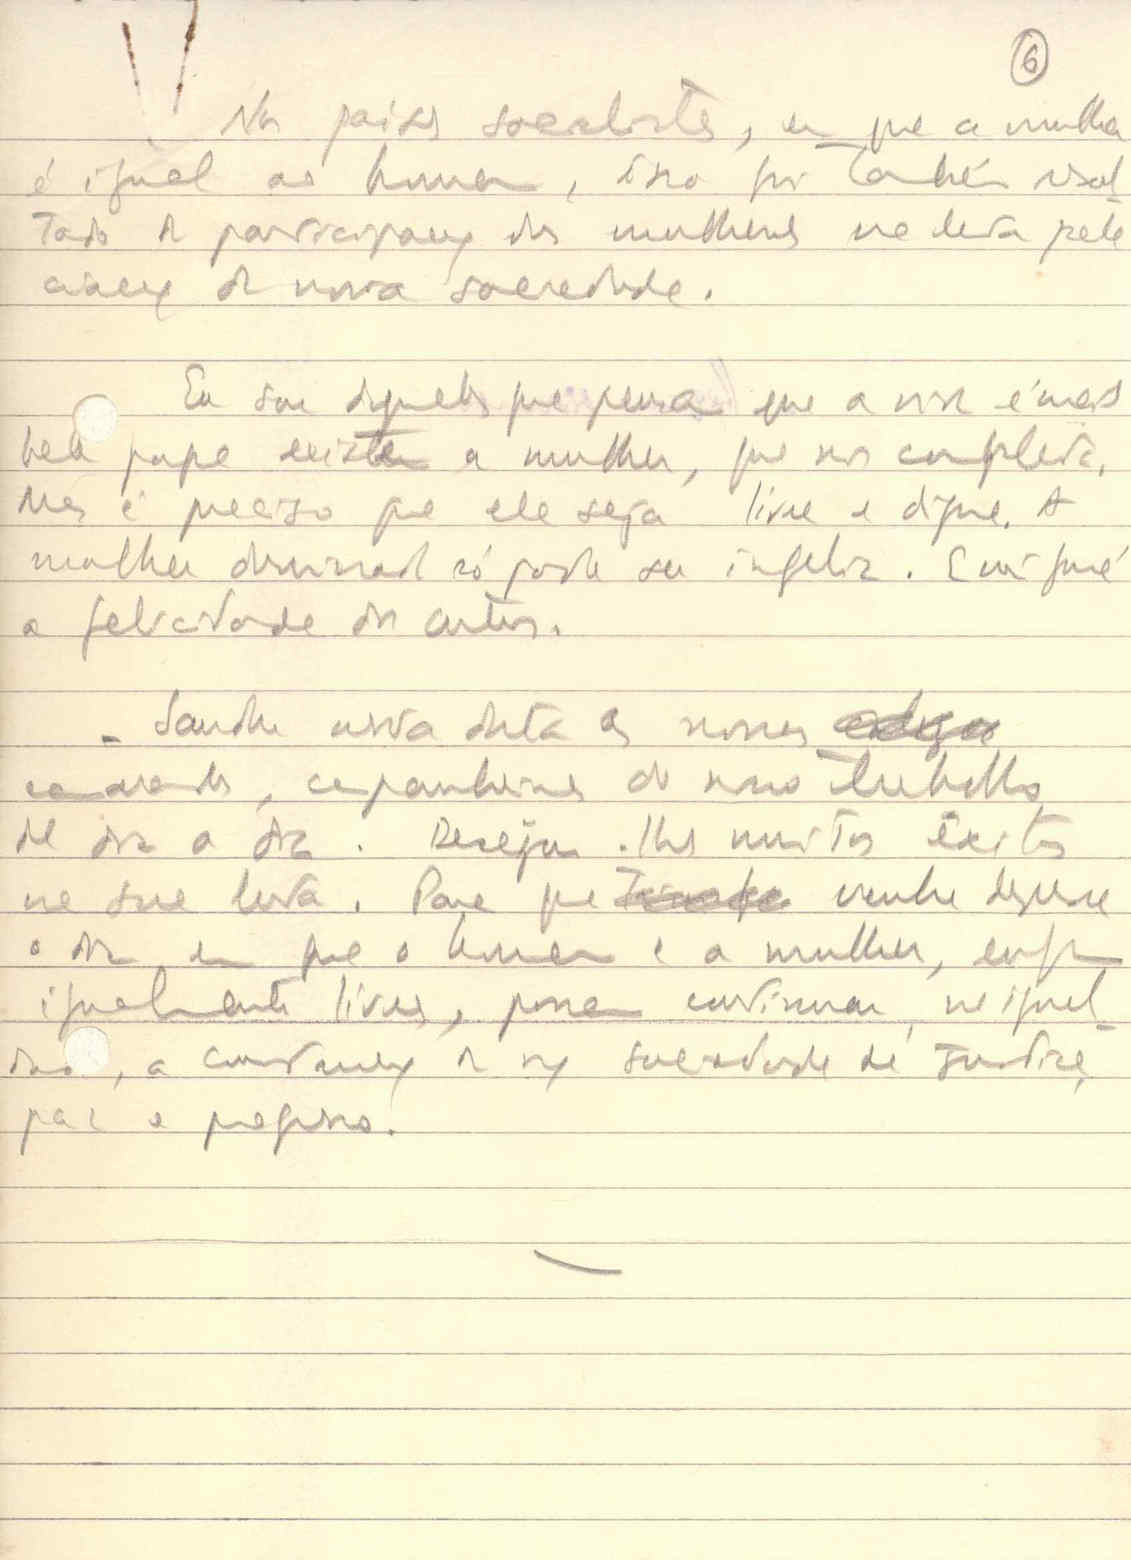 6
Nos países socialistas, em que a mulher
é igual ao homem, isso foi também resul-
tado da participação das mulheres na luta pela
criação da nova sociedade.
Eu sou daqueles que pensam que a vida é mais
bela porque existem a mulher, que nos completa.
Mas é preciso que ela seja livre e digna. A
mulher dominada só pode ser infeliz. E
a felicidade dos outros.
- Saudar nesta data as nossas
camaradas, companheiras do nosso trabalho
de dia a dia. Desejar-lhes muitos êxitos
na sua luta. Para que venha depressa
o dia em que o homem e a mulher, enfim
igualmente livres, possam continuar, na igual-
dade, a construção da sociedade de justiça,
paz e progresso.